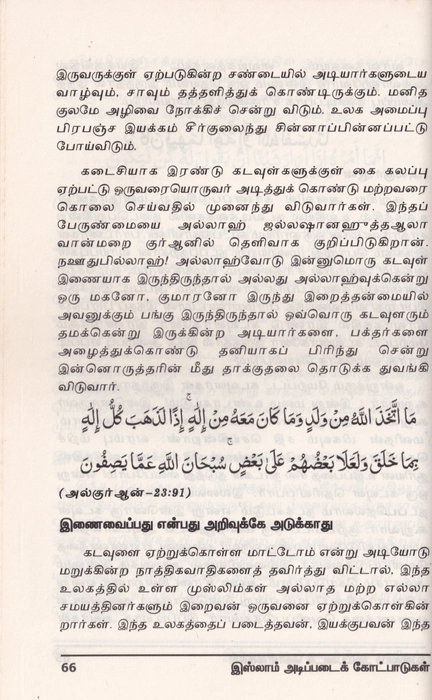 இருவருக்குள் ஏற்படுகின்ற சண்டையில் அடியார்களுடைய
வாழ்வும், சாவும் தத்தளித்துக் கொண்டிருக்கும். மனித
குலமே அழிவை நோக்கிச் சென்று விடும். உலக அமைப்பு
பிரபஞ்ச இயக்கம் சீர்குலைந்து சின்னாப்பின்னப்பட்டு
போய்விடும்.
கடைசியாக இரண்டு கடவுள்களுக்குள் கை கலப்பு
ஏற்பட்டு ஒருவரையொருவர் அடித்துக் கொண்டு மற்றவரை
கொலை செய்வதில் முனைந்து விடுவார்கள். இந்தப்
பேருண்மையை அல்லாஹ் ஜல்லஷானஹுத்தஆலா
வான்மறை குர்ஆனில் தெளிவாக குறிப்பிடுகிறான்.
நஊதுபில்லாஹ்! அல்லாஹ்வோடு இன்னுமொரு கடவுள்
இணையாக இருந்திருந்தால் அல்லது அல்லாஹ்வுக்கென்று
ஒரு மகனோ, குமாரனோ இருந்து இறைத்தன்மையில்
அவனுக்கும் பங்கு இருந்திருந்தால் ஒவ்வொரு கடவுளரும்
தமக்கென்று இருக்கின்ற அடியார்களை, பக்தர்களை
அழைத்துக்கொண்டு தனியாகப் பிரிந்து சென்று
இன்னொருத்தரின் மீது தாக்குதலை தொடுக்க துவங்கி
விடுவார்.
مَا اتَّخَذَ اللَّهُ مِنْ وَلَدٍ وَمَا كَانَ مَعَهُ مِنْ إِلَٰهٍ ۚ إِذًا لَذَهَبَ كُلُّ إِلَٰهٍ
بِمَا خَلَقَ وَلَعَلَا بَعْضُهُمْ عَلَىٰ بَعْضٍ ۚ سُبْحَانَ اللَّهِ عَمَّا يَصِفُونَ
(அல்குர்ஆன்-23:91)
இணைவைப்பது என்பது அறிவுக்கே அடுக்காது
கடவுளை ஏற்றுக்கொள்ள மாட்டோம் என்று அடியோடு
மறுக்கின்ற நாத்திகவாதிகளைத் தவிர்த்து விட்டால், இந்த
உலகத்தில் உள்ள முஸ்லிம்கள் அல்லாத மற்ற எல்லா
சமயத்தினர்களும் இறைவன் ஒருவனை ஏற்றுகொள்கின்
றார்கள். இந்த உலகத்தைப் படைத்தவன், இயக்குபவன் இந்த
66 இஸ்லாம் அடிப்படைக் கோட்பாடுகள்